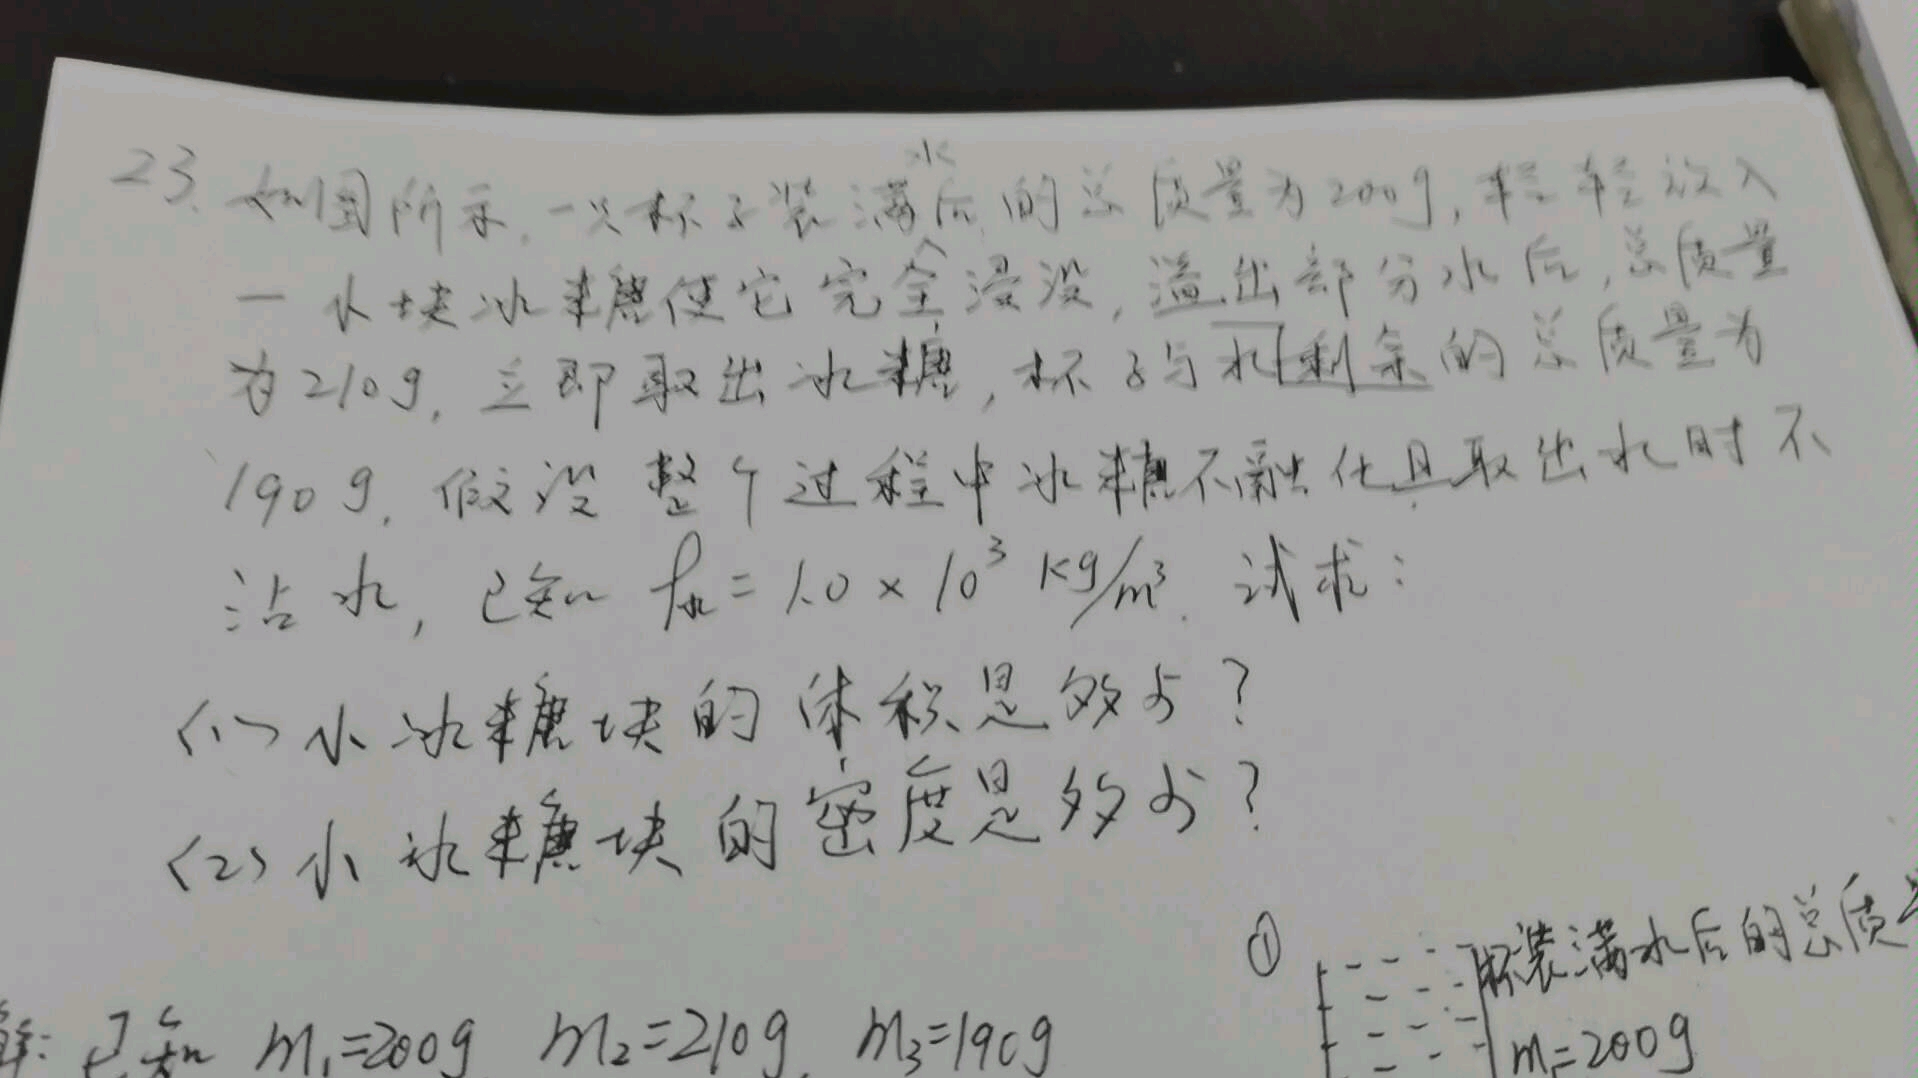 23. 如图所示,一只杯子装满水后的总质量为200g,轻轻放入
一小块冰糖使它完全浸没,溢出部分水后,总质量
为210g,立即取出冰糖,杯子与水剩余的总质量为
190g,假设整个过程中冰糖不融化且取出水时不
沾水,已知 ρ水=1.0×10³kg/m³.试求:
(1)小冰糖块的体积是多少?
(2)小冰糖块的密度是多少?
① 杯装满水后的总质量
m₁=200g
解:已知 m₁=200g, m₂=210g, m₃=190g